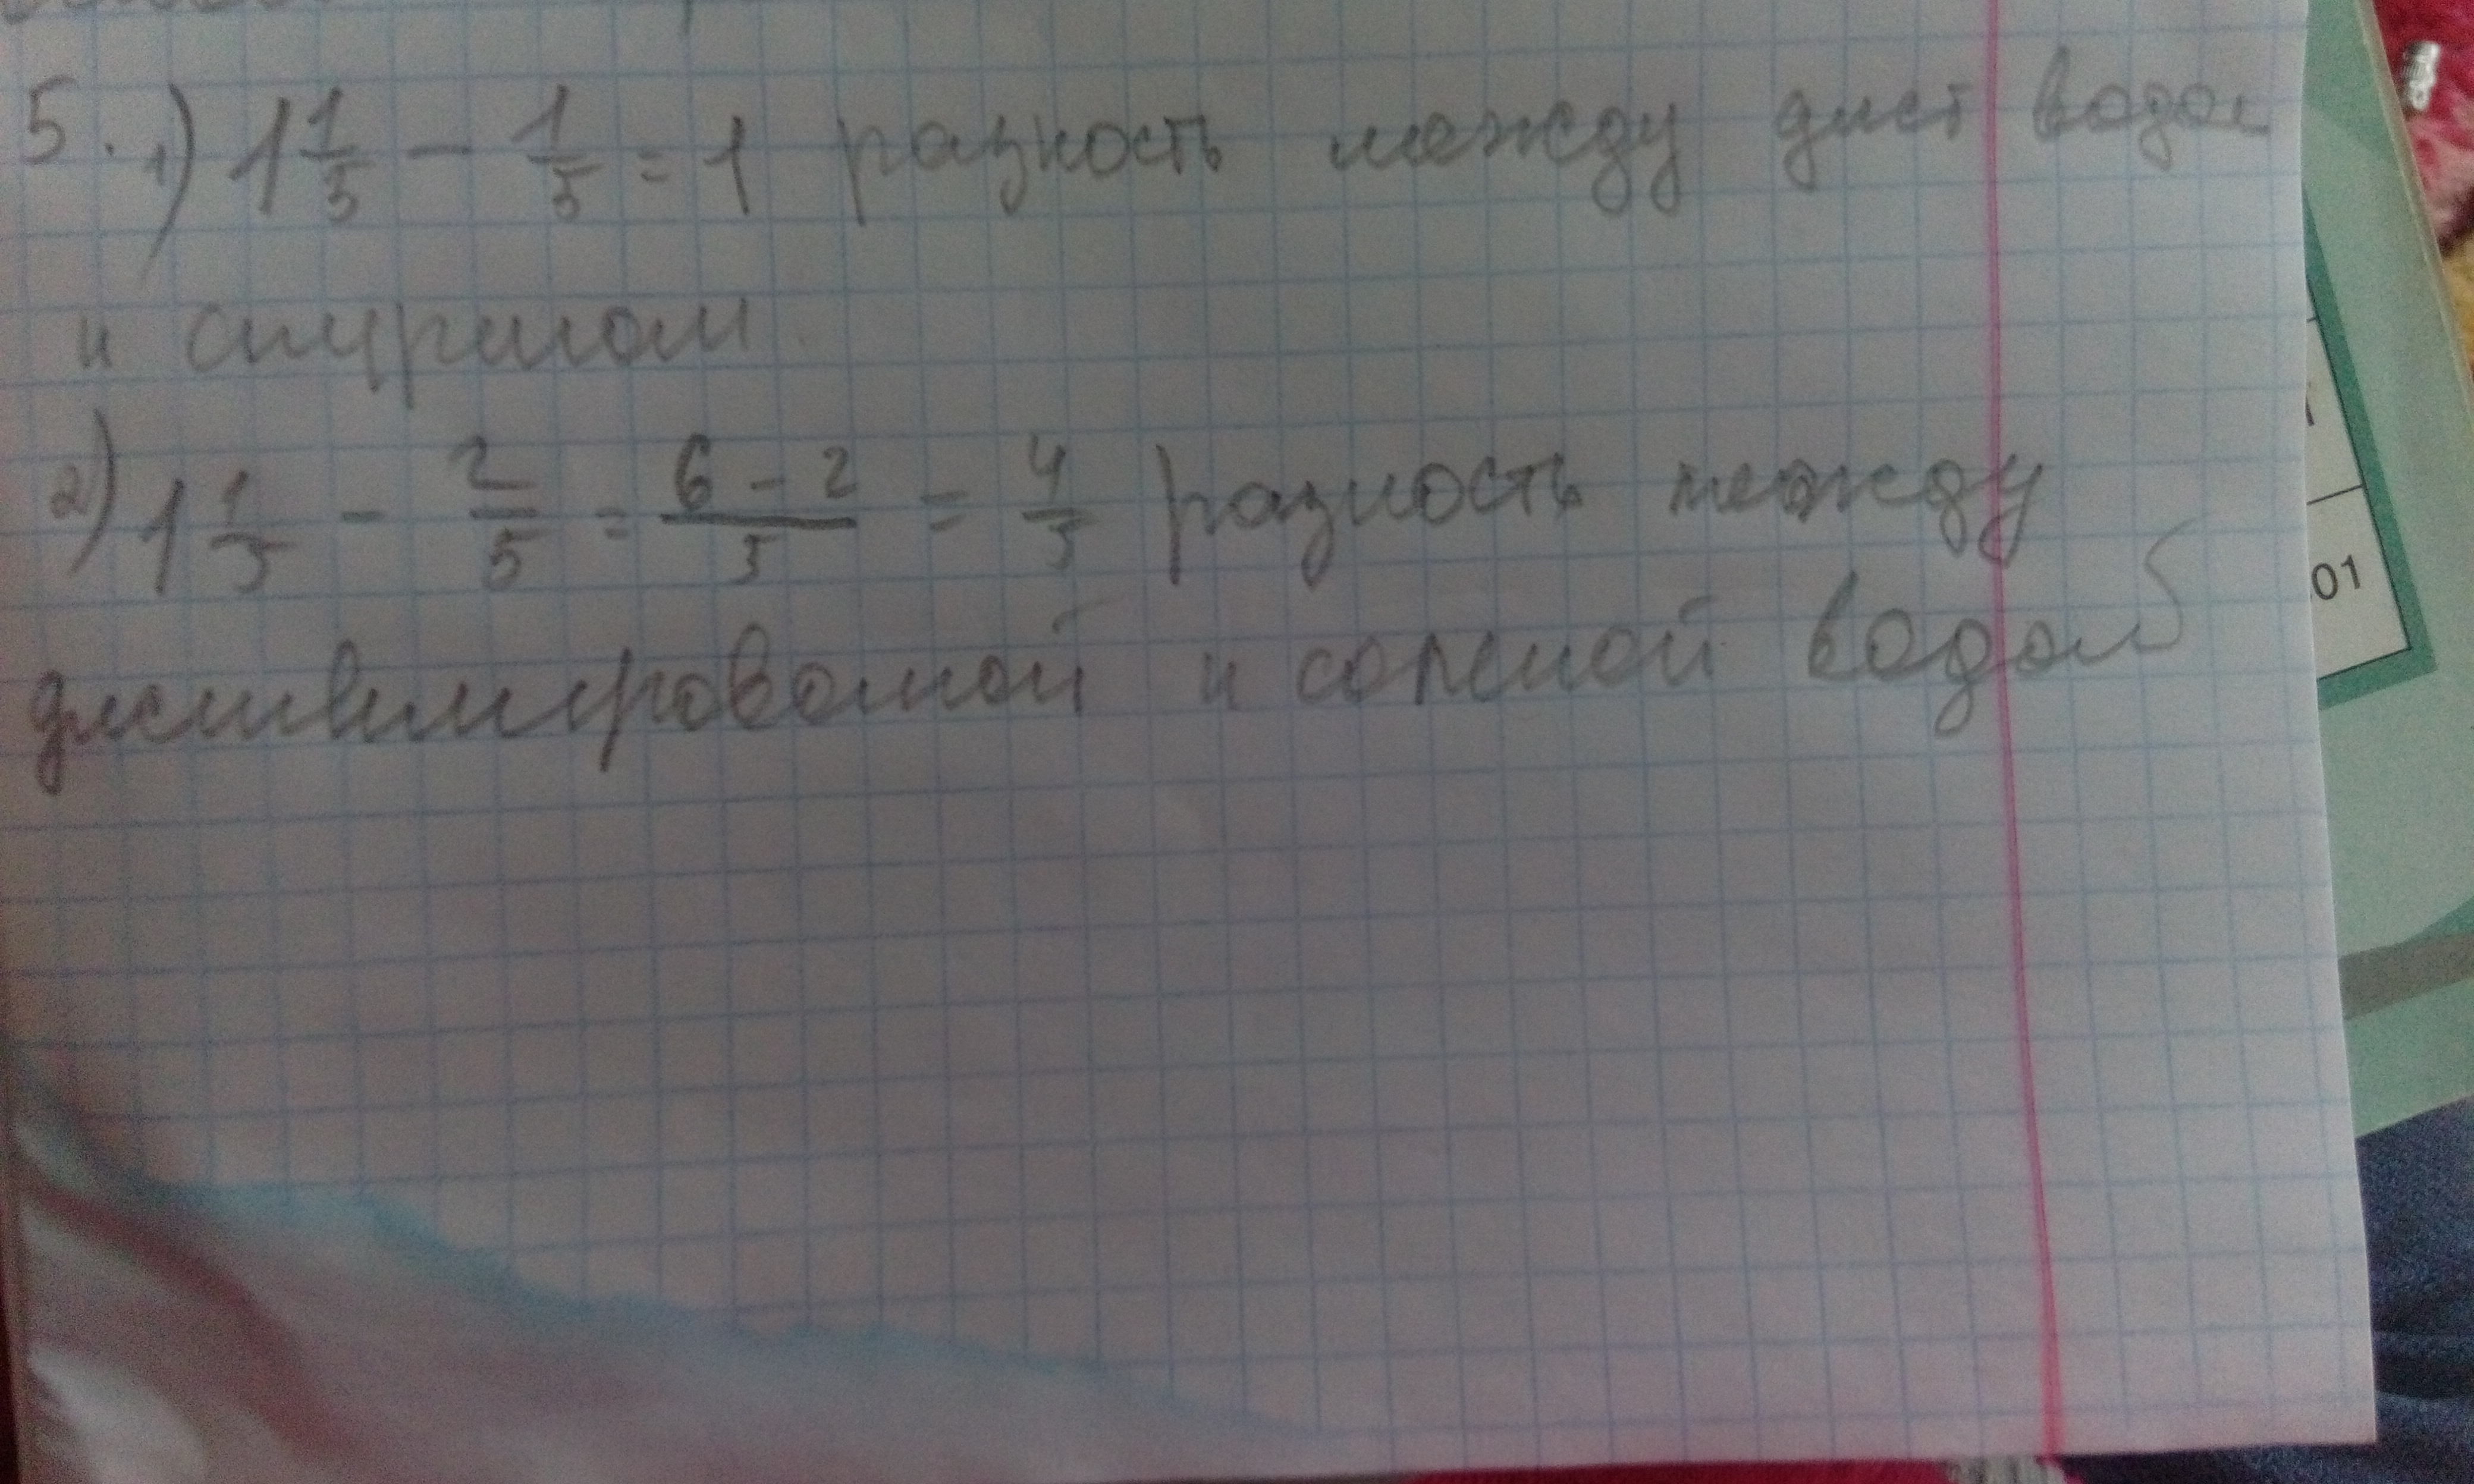 5. 1) 1 1/5 - 1/5 = 1 разность между дист водой
и спиртом.
2) 1 1/5 - 2/5 = 6-2/5 = 4/5 разность между
дистилированой и соленой водой
01